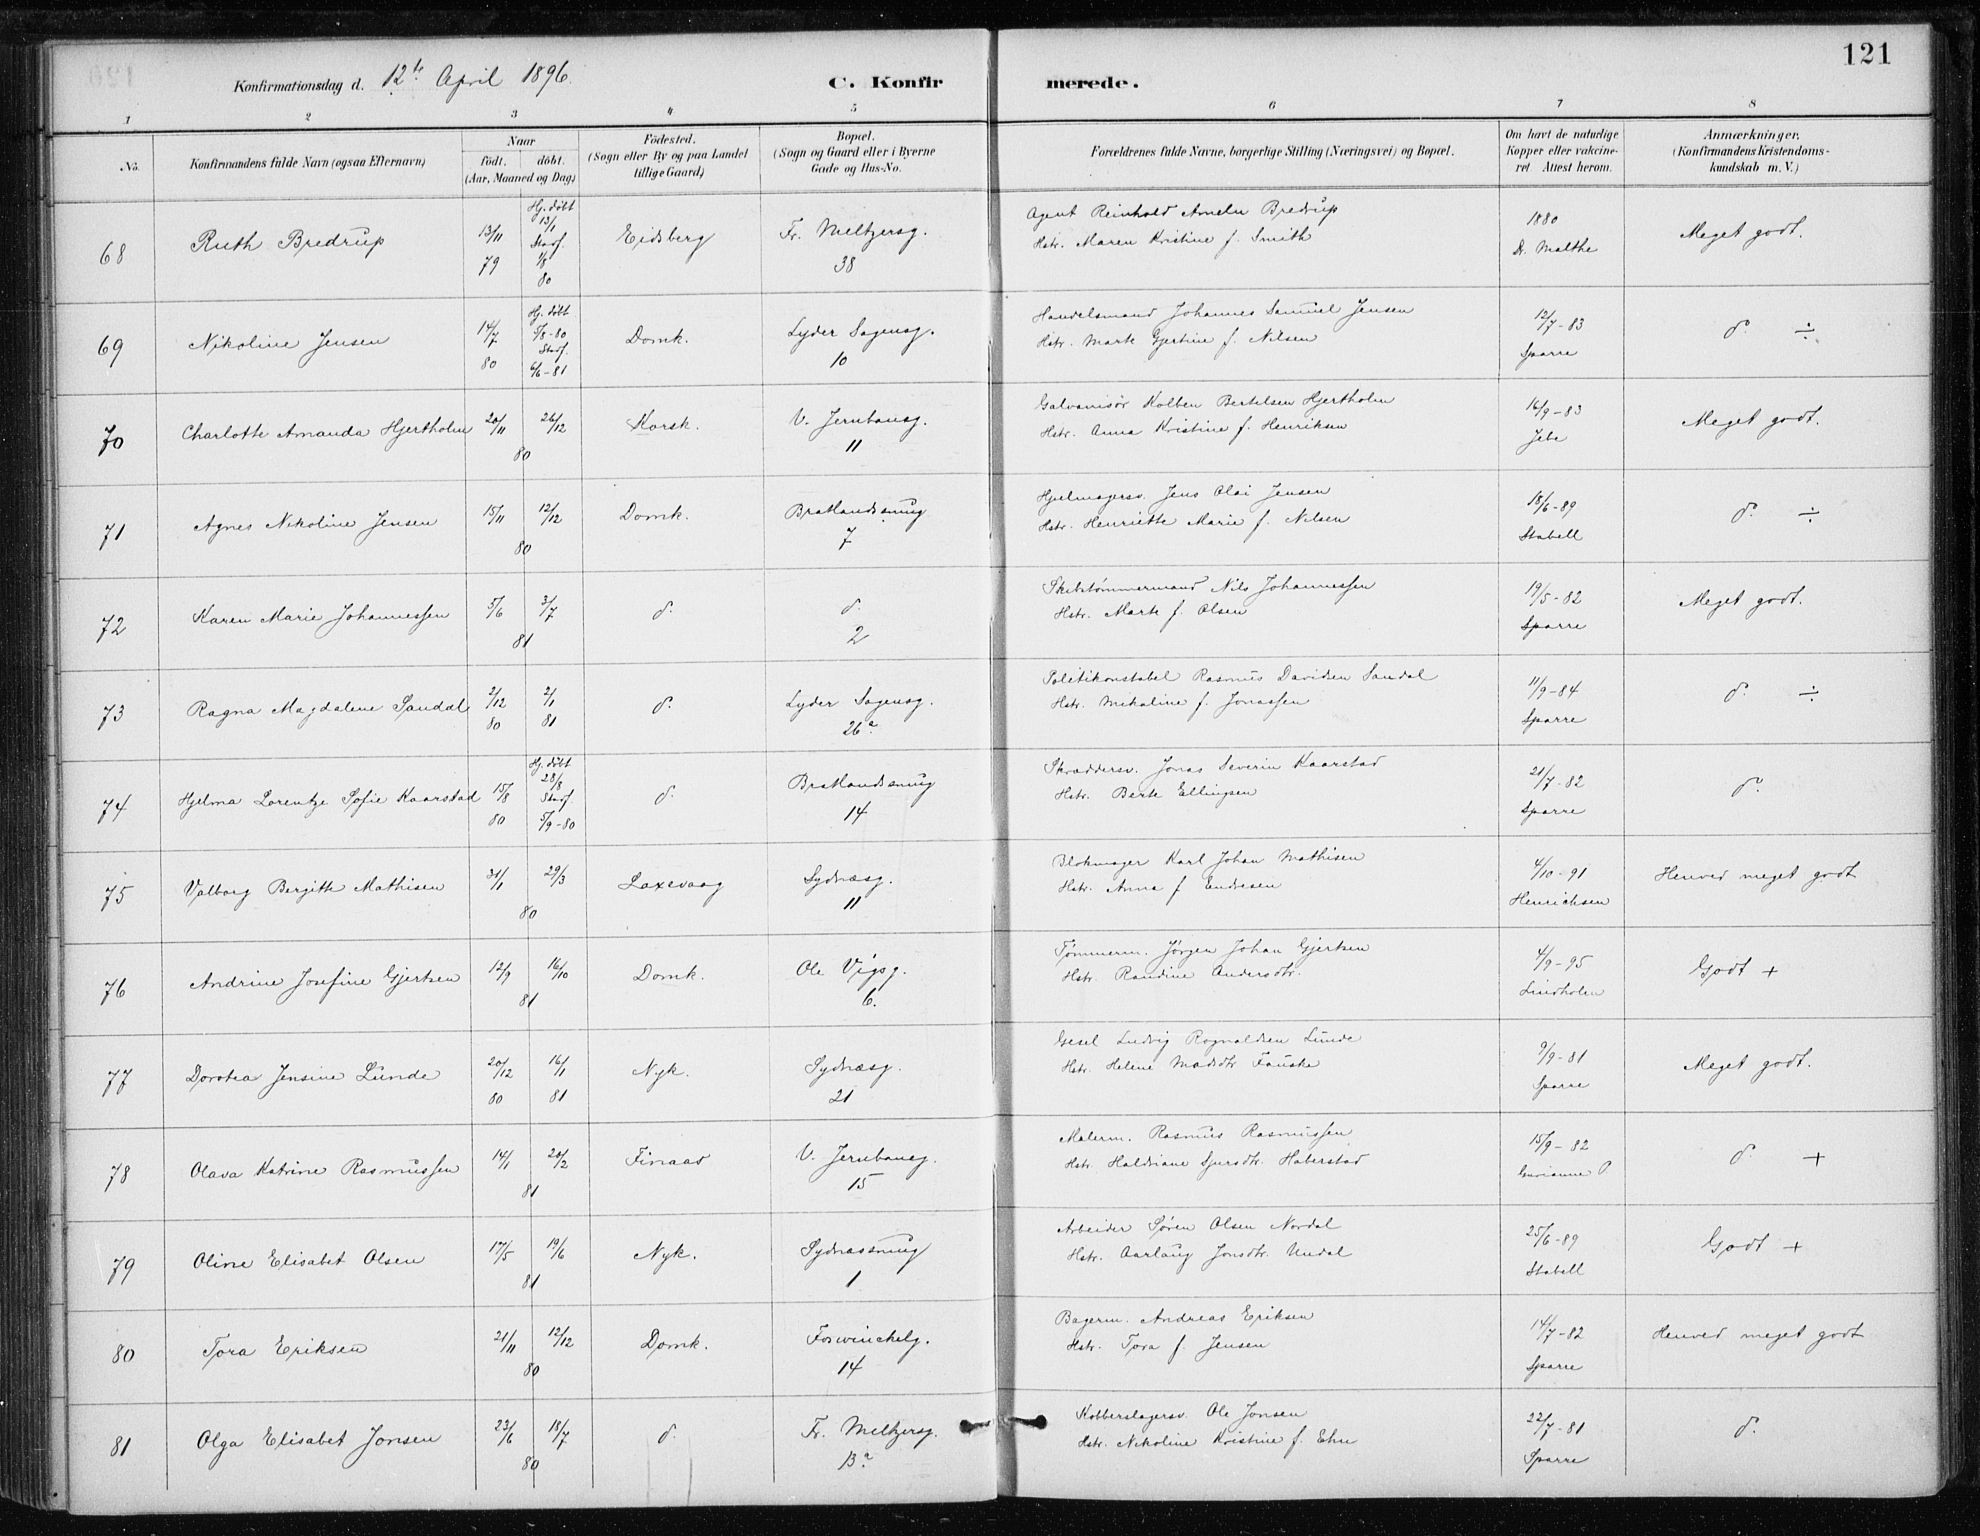 121
Konfirmationsdag d. 12te April 1896.
C. Konfirmerede.
1 2 3 4 5 6 7 8
No.
Konfirmandens fulde Navn (ogsaa Efternavn)
Naar
født. døbt.
(Aar, Maaned og Dag)
Födested.
(Sogn eller By og paa Landet
tillige Gaard)
Bopæl.
(Sogn og Gaard eller i Byerne
Gade og Hus-No.
Forældrenes fulde Navne, borgerlige Stilling (Næringsvei) og Bopæl.
Om havt de naturlige
Kopper eller vakcine-
ret. Attest herom.
Anmærkninger.
(Konfirmandens Kristendoms-
kundskab m. V.)
68 Ruth Bredrup 13/11 79 Hj. døbt 13/1 Stadf. 1/8 80 Eidsberg Fr. Meltzersg. 38
Agent Reinhold Bredrup
Hstr. Maren Kristine f. Smith
1880 Dr. Malthe Meget godt.
69 Nikoline Jensen 14/7 80 Hj. døbt 5/8-80 Stadf. 6/6-81 Domk. Lyder Sagensg. 10
Handelsmand Johannes Samuel Jensen
Hstr. Marte Gjertine f. Nilsen
12/7-83 Sparre d. ÷
70 Charlotte Amanda Hjertholm 20/11 26/12 80 Korsk. V. Jernbaneg. 11
Galvanisør Kolben Bertelsen Hjertholm
Hstr. Anna Kristine f. Henriksen
16/9-83 Jebe Meget godt.
71 Agnes Nikoline Jensen 15/11 12/12 80 Domk. Bratlandsmug 7
Hjulmagersv. Jens Olai Jensen
Hstr. Henriette Marie f. Nilsen
18/6-89 Stabell d. ÷
72 Karen Marie Johannessen 5/6 3/7 81 d. d. 2
Skibstømmermand Nils Johannessen
Hstr. Marte f. Olsen
19/5-82 Sparre Meget godt.
73 Ragna Magdalene Sandal 2/12 80 2/1 81 d. Lyder Sagensg. 26a
Politikonstabel Rasmus Davidsen Sandal
Hstr. Mikaline f. Jonassen
11/9-84 Sparre d. ÷
74 Hjelma Lorentze Sofie Kaarstad 15/8 80 Hj. døbt 28/8 Stadf. 5/9-80 d. Bratlandsmug 14
Skræddersv. Jonas Severin Kaarstad
Hstr. Berte Ellingsen
21/7-82 Sparre d.
75 Valborg Bergitte Mathisen 31/1 29/3 80 Laxevaag Sydnæsg. 11
Blokmager Karl Johan Mathisen
Hstr. Anna f. Endresen
4/10-91 Henrichsen Henved meget godt
76 Andrine Josefine Gjertsen 12/9 16/10 81 Domk. Ole Vigsg. 6.
Tømmerm. Jørgen Johan Gjertsen
Hstr. Randine Andersdtr.
4/9-95 Lindholm Godt +
77 Dorotea Jensine Lunde 20/12 80 16/1 81 Nyk. Sydnæsg. 21
Gesel Ludvig Rognaldsen Lunde
Hstr. Helene Madsdtr Fauske
9/9-81 Sparre Meget godt.
78 Olava Katrine Rasmussen 14/1 20/2 81 Finaas V. Jernbaneg. 15
Malerm. Rasmus Rasmussen
Hstr. Haldriane Sjursdtr. Haberstad
15/9-82 d. +
79 Oline Elisabet Olsen 17/5 19/6 81 Nyk. Sydnæssmug 1
Arbeider Søren Olsen Nordal
Hstr. Aarlaug Jonsdtr. Undal
25/6-89 Stabell Godt +
80 Tora Eriksen 21/11 12/12 80 Domk. Foswinckelg. 14
Bagerm. Andreas Eriksen
Hstr. Tora f. Jensen
14/7-82 Sparre Henved meget godt
81 Olga Elisabet Jonsen 23/6 18/7 80 d. Fr. Meltzersg. 13a
Kobberslagersv. Ole Jonsen
Hstr. Nikoline Kristine f. Ehn
22/7-81 Sparre d.